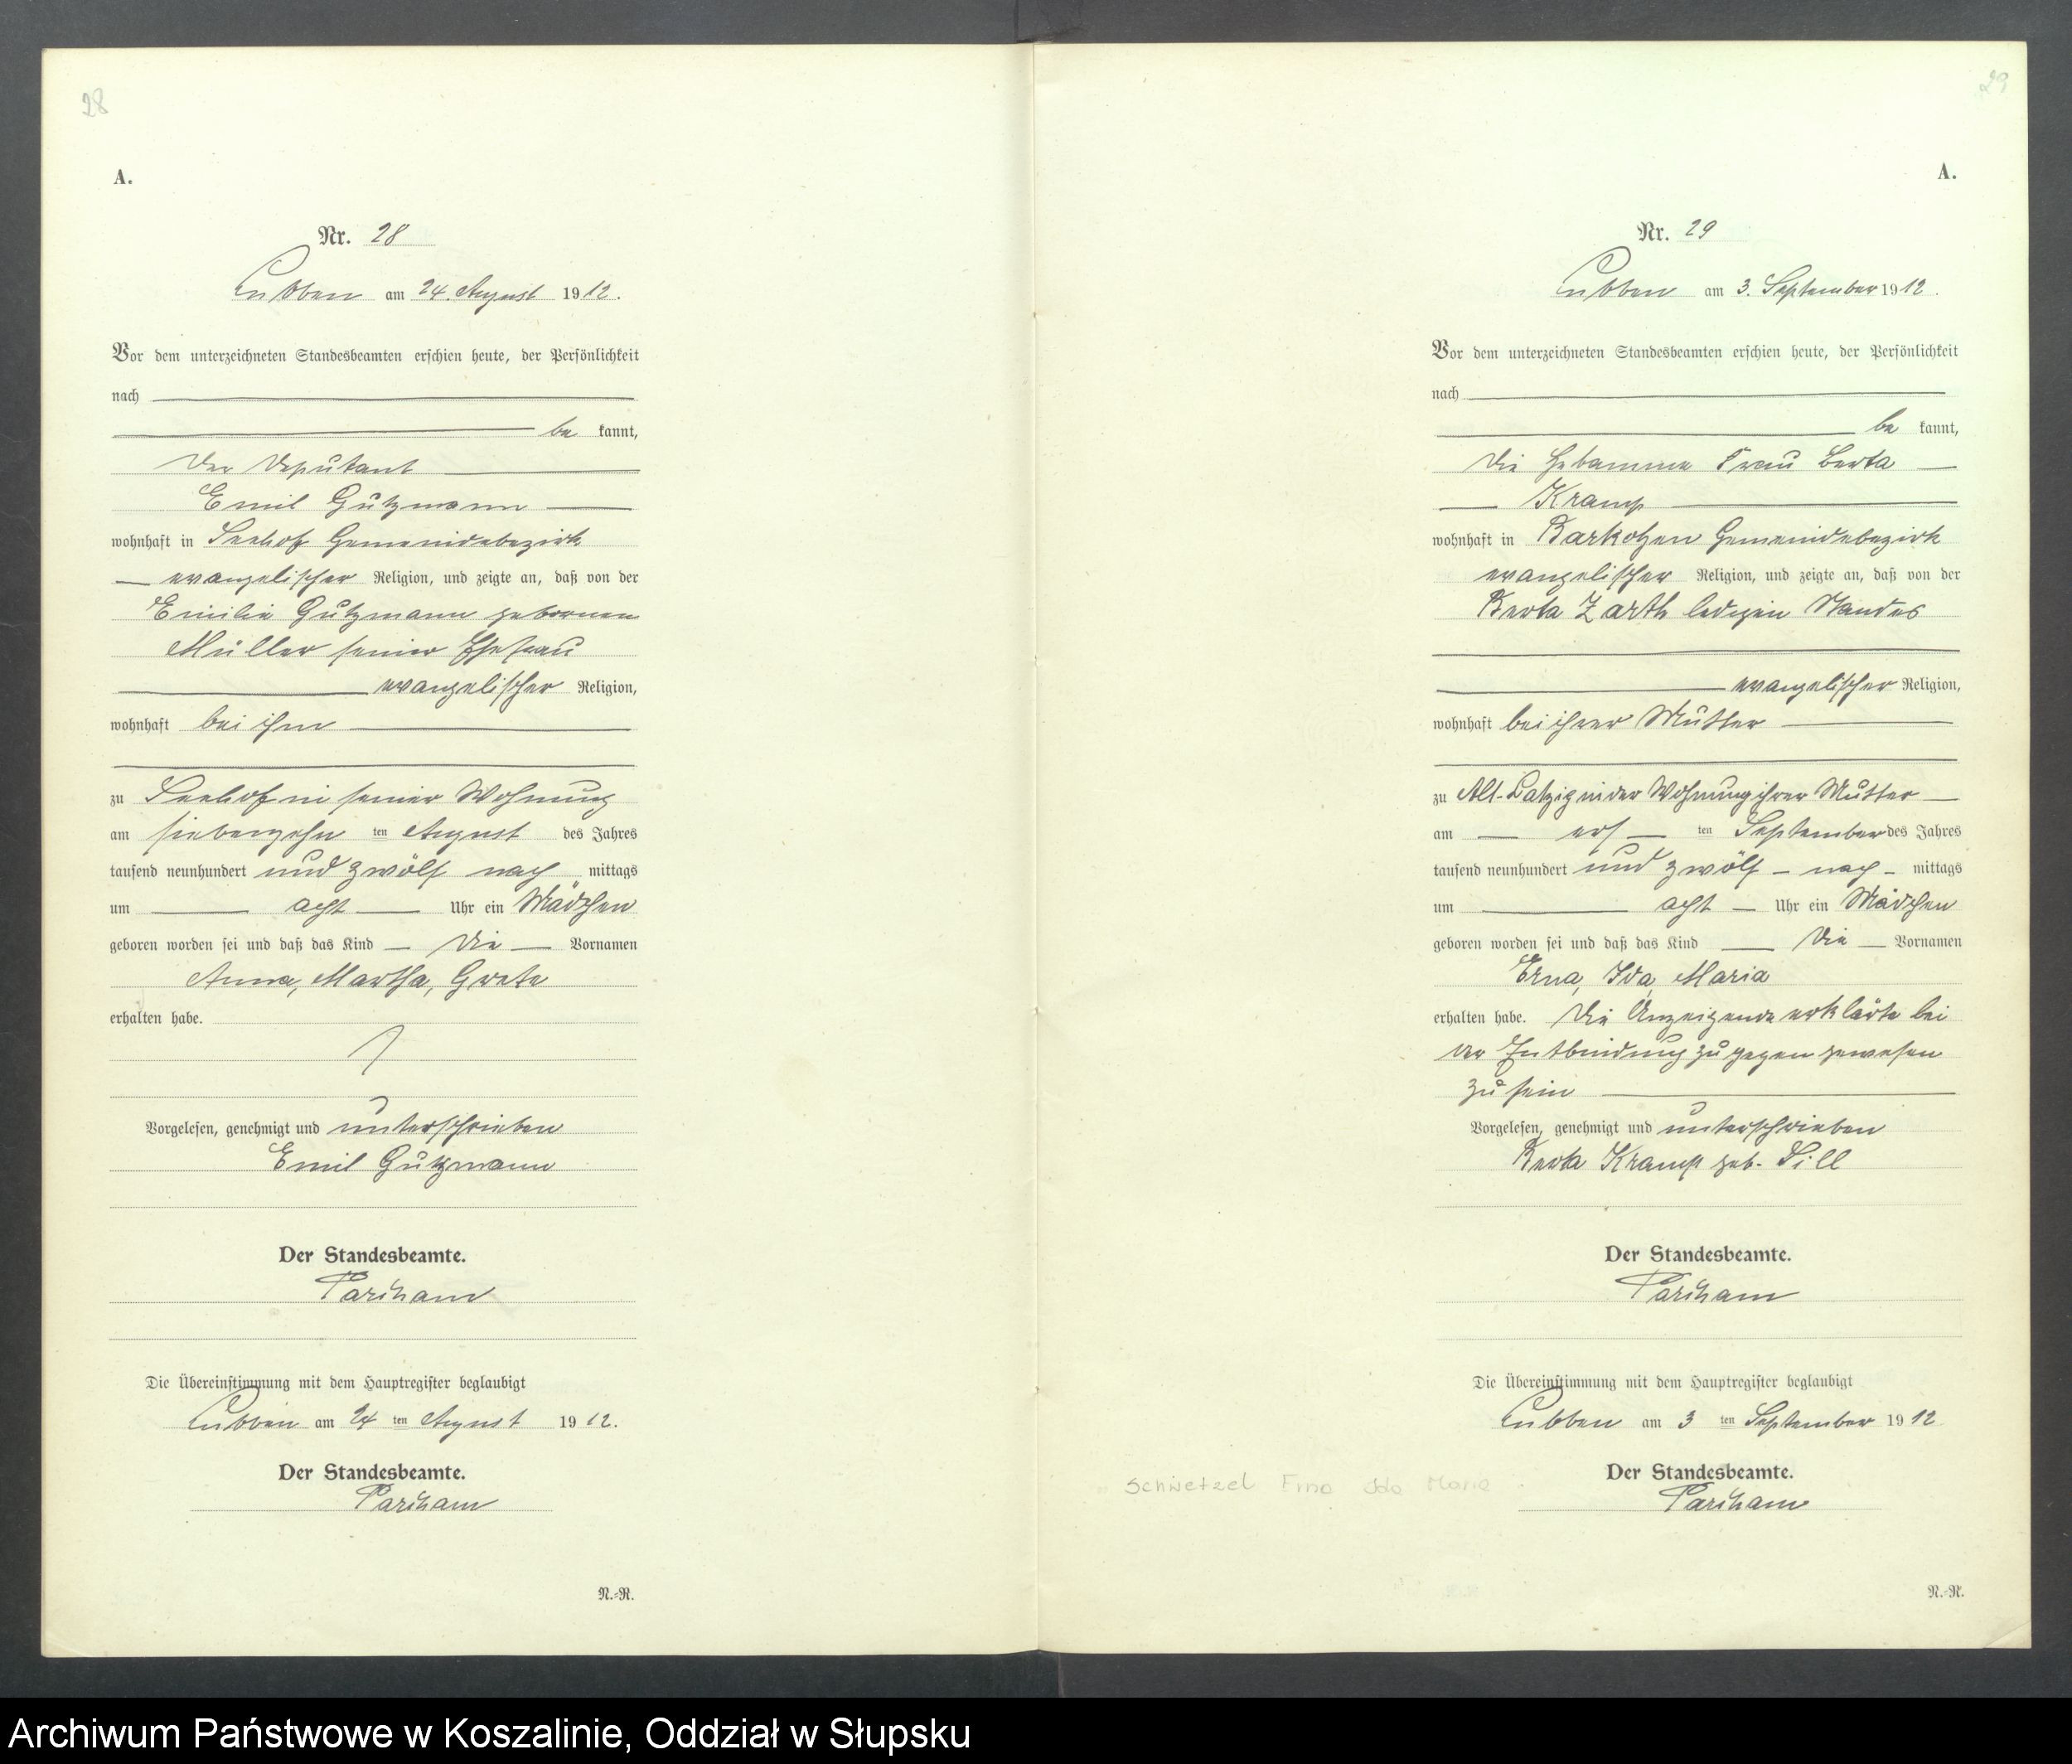 28
A.
Nr. 28
Lubben am 24. August 1912.
Vor dem unterzeichneten Standesbeamten erschien heute, der Persönlichkeit
nach
be kannt,
der Deputant
Emil Gutzmann
wohnhaft in Seehof Gemeindebezirk
evangelischer Religion, und zeigte an, daß von der
Emilie Gutzmann gebornen
Müller seiner Ehefrau
evangelischer Religion,
wohnhaft bei ihm
zu Seehof in seiner Wohnung
am siebenzehn ten August des Jahres
tausend neunhundert und zwölf nach mittags
um acht Uhr ein Mädchen
geboren worden sei und daß das Kind die Vornamen
Anna, Martha, Grete
erhalten habe.
Vorgelesen, genehmigt und unterschrieben
Emil Gutzmann
Der Standesbeamte.
Die Übereinstimmung mit dem Hauptregister beglaubigt
Lubben am 24 ten August 1912.
Der Standesbeamte.
N.-R.
29
A.
Nr. 29
Lubben am 3. September 1912.
Vor dem unterzeichneten Standesbeamten erschien heute, der Persönlichkeit
nach
be kannt,
die Hebamme Frau Berta
Kramp
wohnhaft in Barkotzen Gemeindebezirk
evangelischer Religion, und zeigte an, daß von der
Berta Zarth ledigen Standes
evangelischer Religion,
wohnhaft bei ihrer Mutter
zu Alt-Latzig in der Wohnung ihrer Mutter
am ers ten September des Jahres
tausend neunhundert und zwölf nach mittags
um acht Uhr ein Mädchen
geboren worden sei und daß das Kind die Vornamen
Erna, Ida, Maria
erhalten habe. Die Anzeigende erklärte bei
der Entbindung zugegen gewesen
zu sein
Vorgelesen, genehmigt und unterschrieben
Berta Kramp geb. Sill
Der Standesbeamte.
Die Übereinstimmung mit dem Hauptregister beglaubigt
Lubben am 3 ten September 1912
Der Standesbeamte.
Schwetzel Erna Ida Maria
N.-R.
Archiwum Państwowe w Koszalinie, Oddział w Słupsku